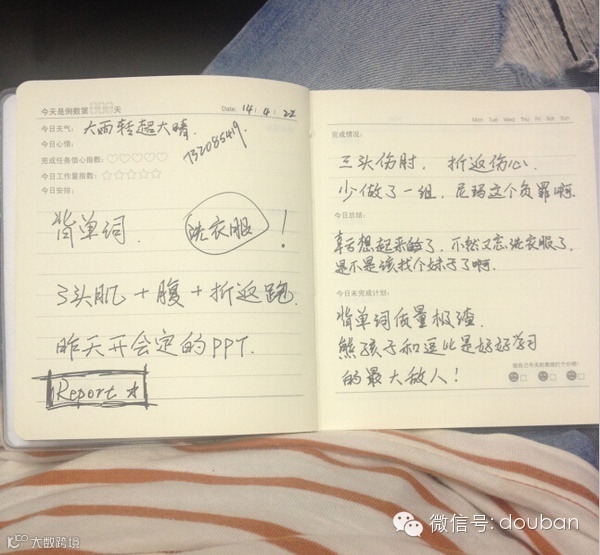 今天是倒数第 天
Date: 14 . 4 . 22
今日天气: 大雨转超大晴.
732085419.
今日心情:
完成任务信心指数:
今日工作量指数:
今日安排:
背单词. 洗衣服!
3头肌 + 腹 + 折返跑.
昨天开会定的PPT.
Report ★
Mon Tue Wed Thu Fri Sat Sun
完成情况:
三头伤肘, 折返伤心.
少做了一组, 尼玛这个负罪啊.
今日总结:
幸亏想起来的了, 不然又忘洗衣服了,
是不是该找个妹子了啊.
今日未完成计划:
背单词质量极渣.
熊孩子和逗比是好好学习
的最大敌人!
给自己今天的表现打个分吧!
微信号: douban
大数跨境